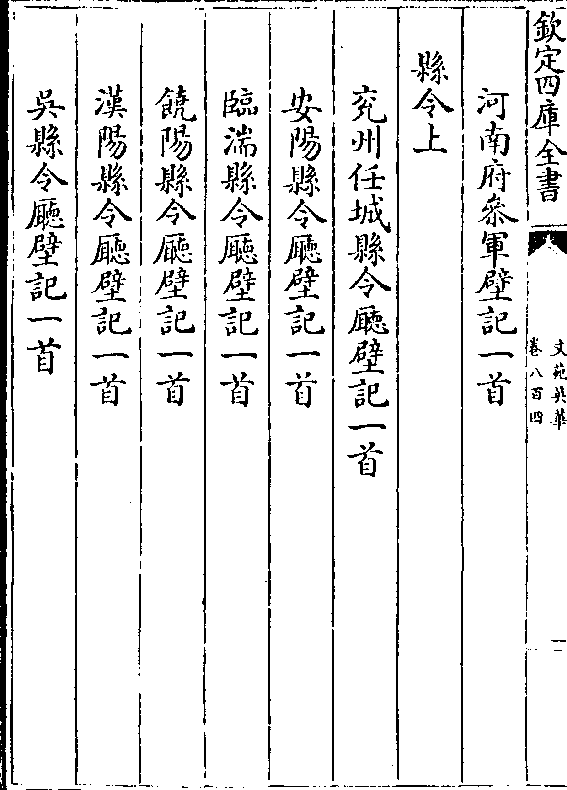 欽定四庫全書
文苑英華
卷八百四
一
河南府叅軍壁記一首
縣令上
兖州任城縣令廳壁記一首
安陽縣令廳壁記一首
臨湍縣令廳壁記一首
饒陽縣令廳壁記一首
漢陽縣令廳壁記一首
吳縣令廳壁記一首